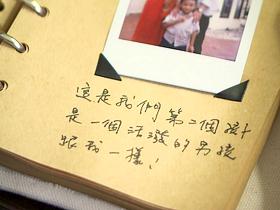 這是我們第二個孩子
是一個活潑的男孩
跟我一樣！